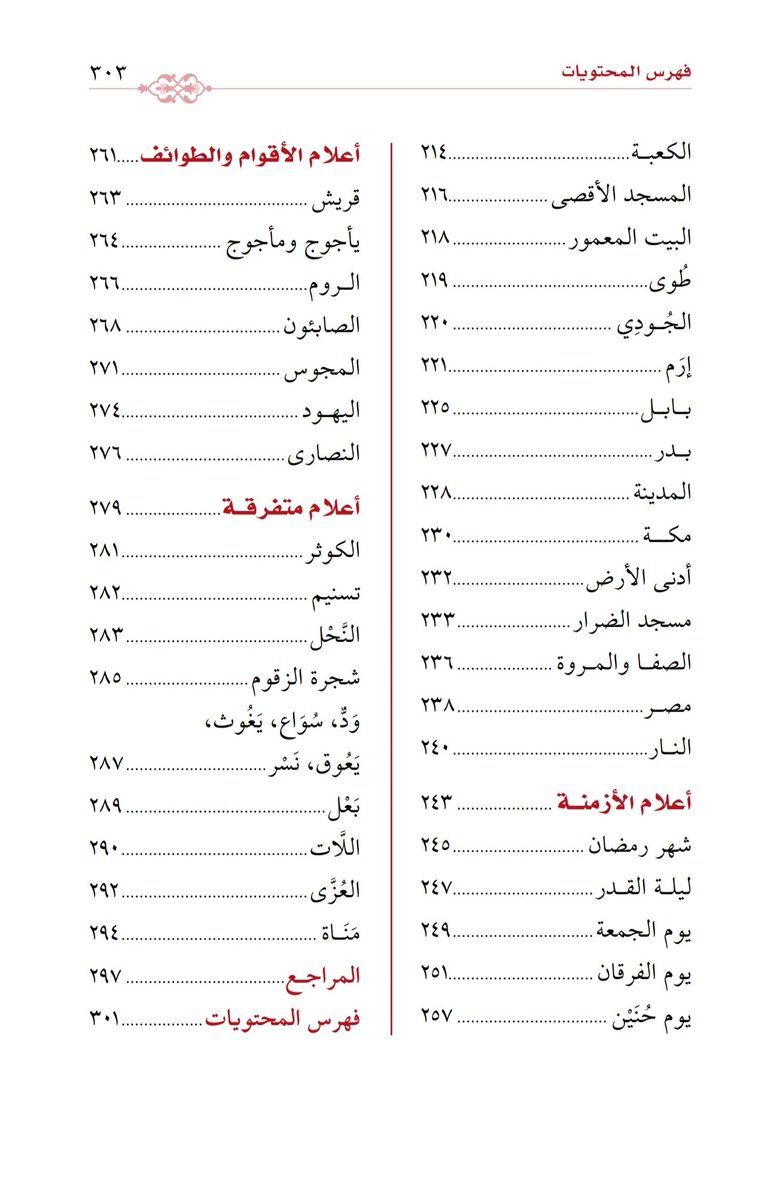 فهرس المحتويات ٣٠٣
الكعبـة........................................٢١٤
المسجد الأقصى ......................٢١٦
البيت المعمور .........................٢١٨
طُوى...........................................٢١٩
الجُـودِي ...................................٢٢٠
إرَم ...............................................٢٢١
بـابـل.........................................٢٢٥
بـدر............................................٢٢٧
المدينة .......................................٢٢٨
مكـــة .........................................٢٣٠
أدنى الأرض.............................٢٣٢
مسجد الضرار .........................٢٣٣
الصفـا والمـروة .....................٢٣٦
مصـر..........................................٢٣٨
النـار...........................................٢٤٠
أعلام الأزمنــة .....................٢٤٣
شهر رمضان .............................٢٤٥
ليلـة القـدر...............................٢٤٧
يوم الجمعة...............................٢٤٩
يوم الفرقان................................٢٥١
يوم حُنَيْن .................................٢٥٧
أعلام الأقوام والطوائف.....٢٦١
قريش ........................................٢٦٣
يأجوج ومأجوج ......................٢٦٤
الـروم.........................................٢٦٦
الصابئون ..................................٢٦٨
المجوس ...................................٢٧١
اليهـود .......................................٢٧٤
النصارى ...................................٢٧٦
أعلام متفرقــة .....................٢٧٩
الكوثر ........................................٢٨١
تسنيم .........................................٢٨٢
النَّحْل.........................................٢٨٣
شجرة الزقوم ...........................٢٨٥
وَدٌّ، سُوَاع، يَغُوث،
يَعُوق، نَسْر ...............................٢٨٧
بَعْل.............................................٢٨٩
اللَّات .........................................٢٩٠
العُزَّى .........................................٢٩٢
مَنَـاة ...........................................٢٩٤
المراجـع...................................٢٩٧
فهرس المحتويات ..................٣٠١